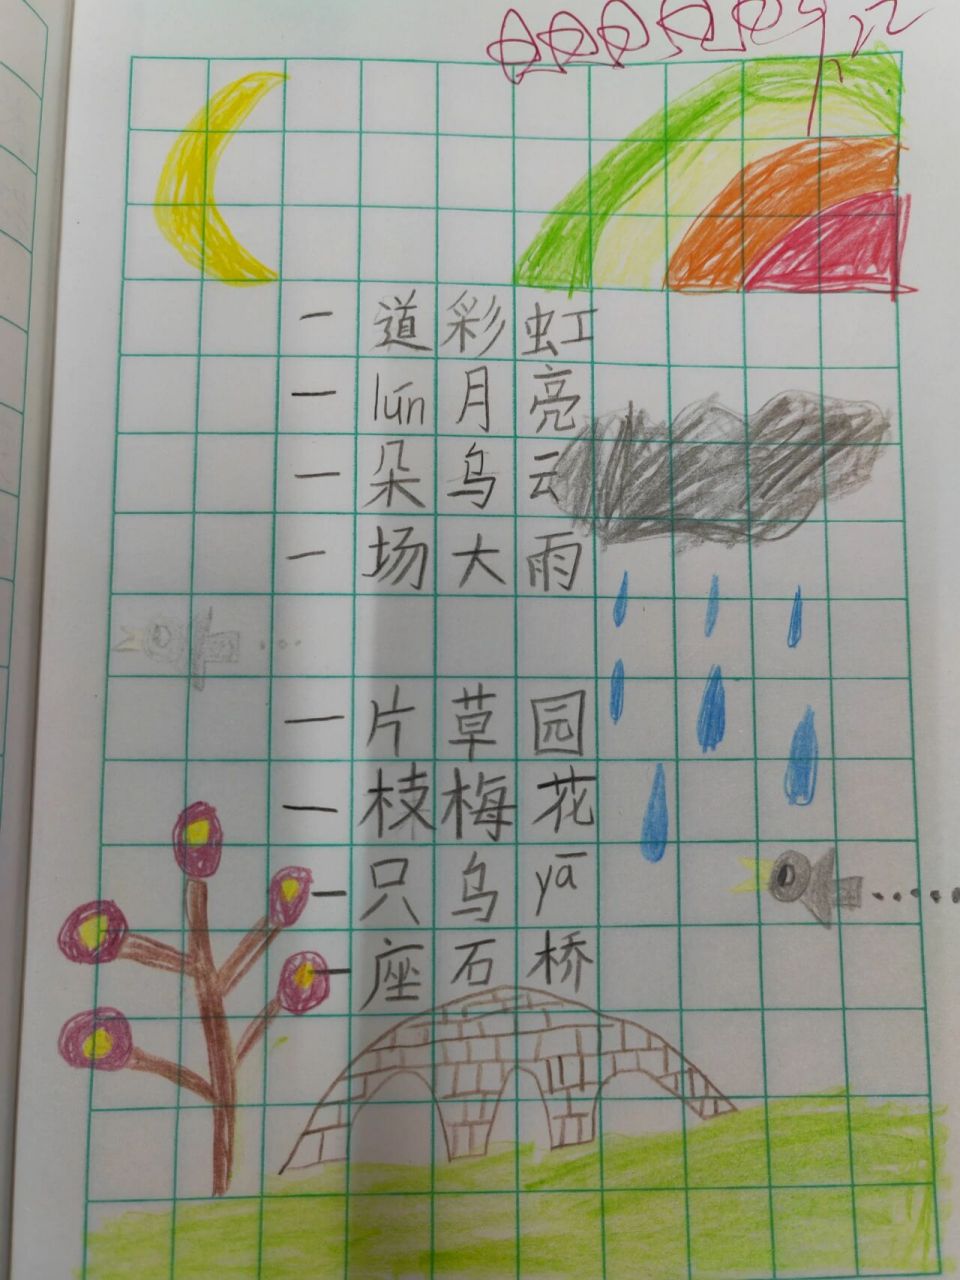 一道彩虹
一lún月亮
一朵乌云
一场大雨
一片草园
一枝梅花
一只乌yā
一座石桥